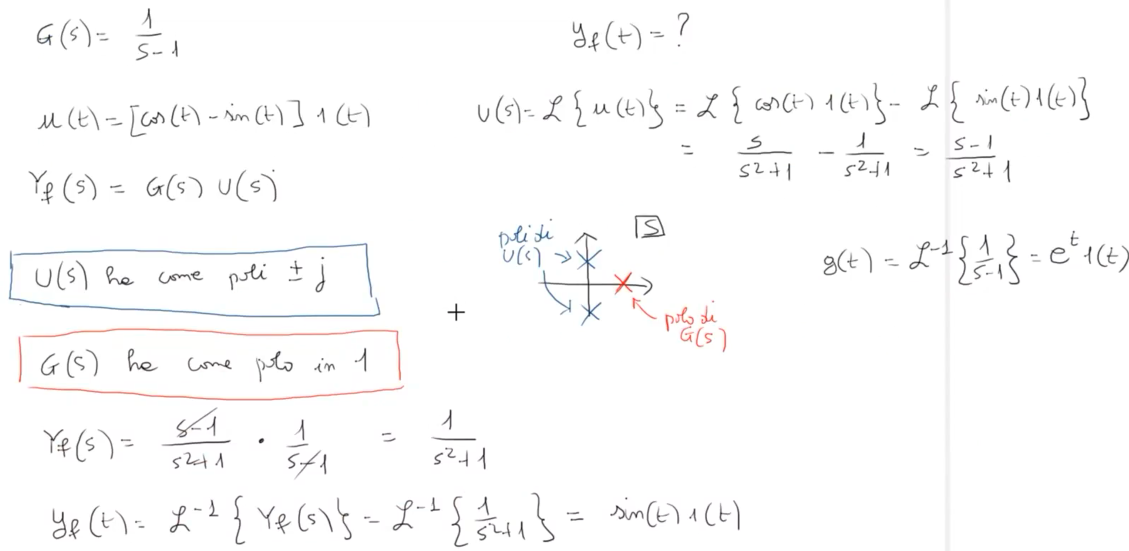 G(s) = 1/(s-1)
y_f(t) = ?
u(t) = [cos(t) - sin(t)] 1(t)
U(s) = ℒ{u(t)} = ℒ{cos(t) 1(t)} - ℒ{sin(t) 1(t)}
= s/(s²+1) - 1/(s²+1) = (s-1)/(s²+1)
Y_f(s) = G(s) U(s)
U(s) ha come poli ± j
poli di
U(s)
S
g(t) = ℒ⁻¹{1/(s-1)} = e^t 1(t)
+
polo di
G(s)
G(s) ha come polo in 1
Y_f(s) = (s-1)/(s²+1) · 1/(s-1) = 1/(s²+1)
y_f(t) = ℒ⁻¹{Y_f(s)} = ℒ⁻¹{1/(s²+1)} = sin(t) 1(t)